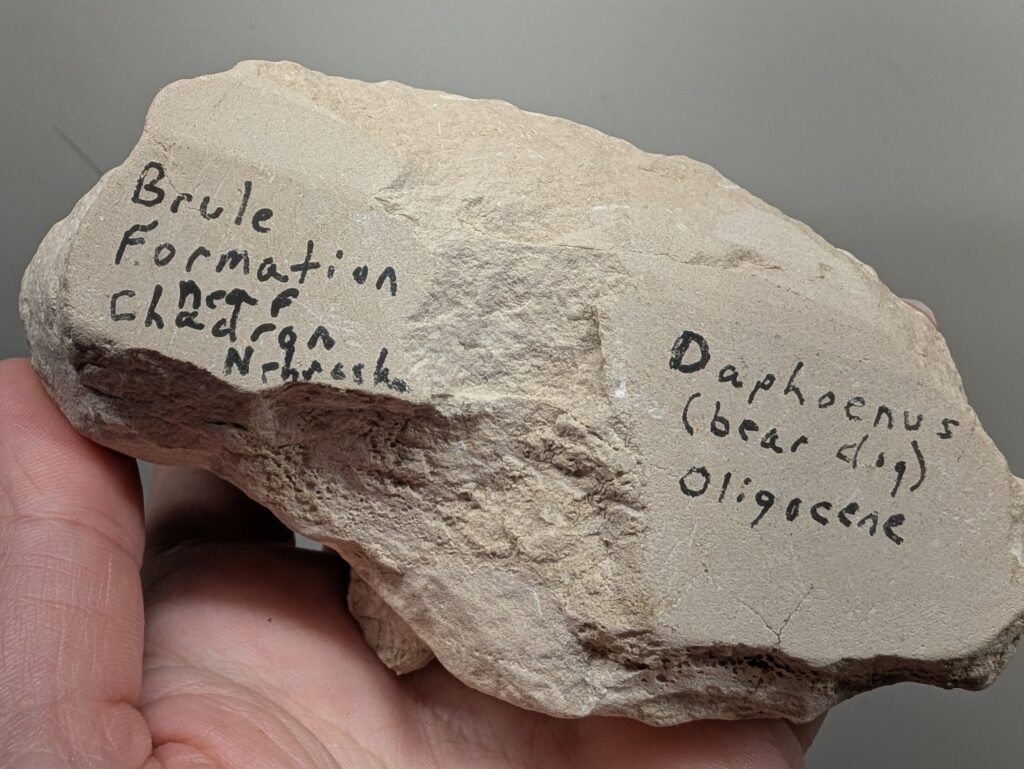 Brule
Formation
near
Chadron
Nebraska
Daphoenus
(bear dog)
Oligocene